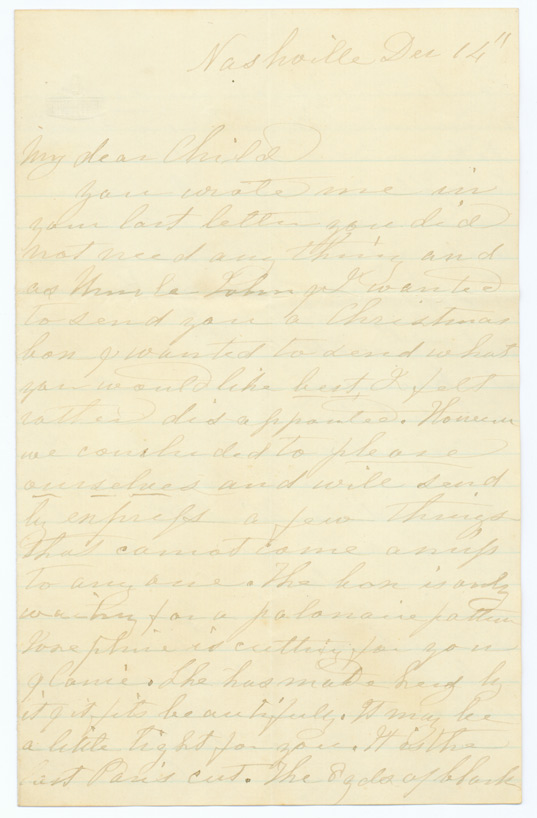 Nashville Dec 14"
My dear Child
you wrote me in
your last letter you did
not need any thing and
as Uncle John & I wanted
to send you a Christmas
box & wanted to send what
you would like best, I felt
rather disappointed. However
we concluded to please
ourselves and will send
by express a few things
that cannot come amiss
to any one. The box is only
waiting for a polonaise pattern
Josephine is cutting for you
& . She has made hers by
it & it fits beautifully. It may be
a little tight for you. It is the
last Paris cut. The 8 yds of black